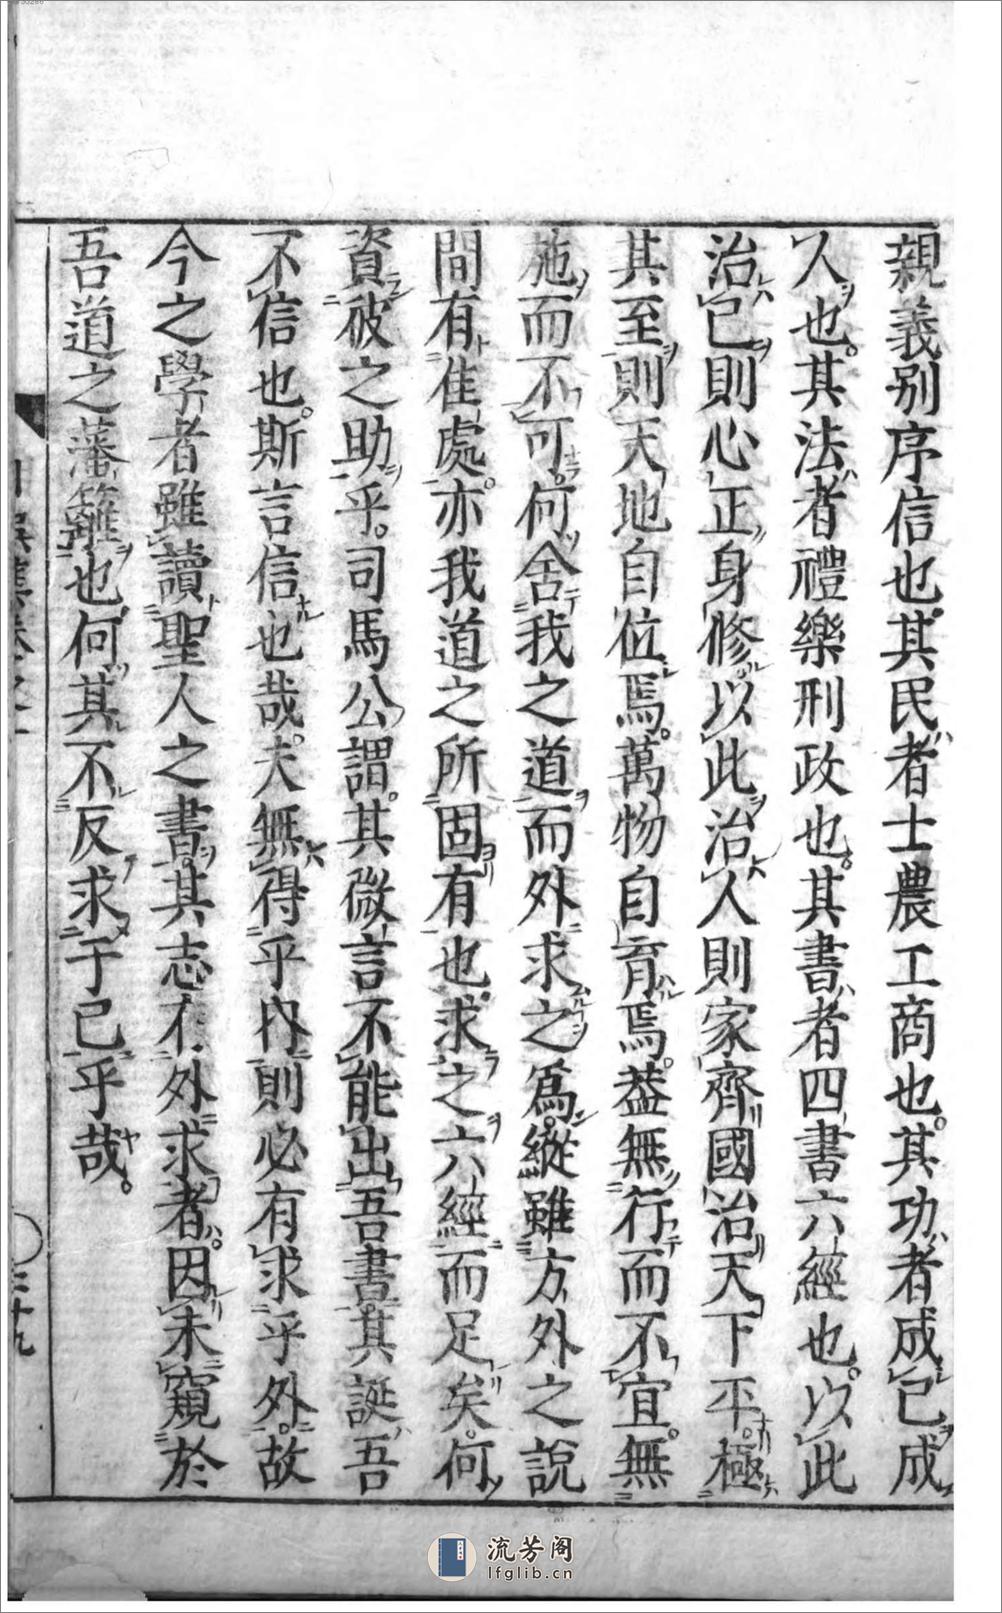 親義別序信也。其民者士農工商也。其功者成己成
人也。其法者禮樂刑政也。其書者四書六經也。以此
治己則心正身修。以此治人則家齊國治天下平。極
其至則天地自位焉。萬物自育焉。蓋無行而不宜。無
施而不可。何舍我之道而外求之爲。縱雖方外之說
間有佳處。亦我道之所固有也。求之六經而足矣。何
資彼之助乎。司馬公謂。其微言不能出吾書。其誕吾
不信也。斯言信也哉。夫無得乎内。則必有求乎外。故
今之學者雖讀聖人之書。其志在外求者。因未窺於
吾道之藩籬也。何其不反求于己乎哉。
三十九
流芳阁
lfglib.cn